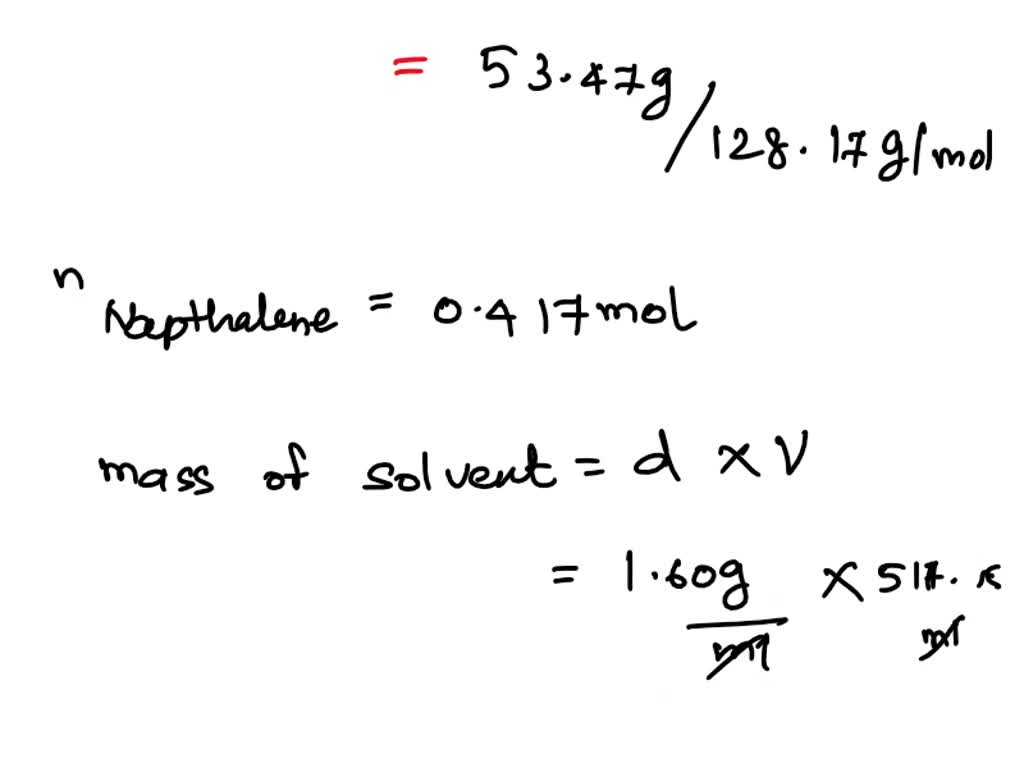 = 53.47g/128.17g/mol
n Napthalene = 0.417mol
mass of solvent = d × V
= 1.60g/ml × 517.
ml